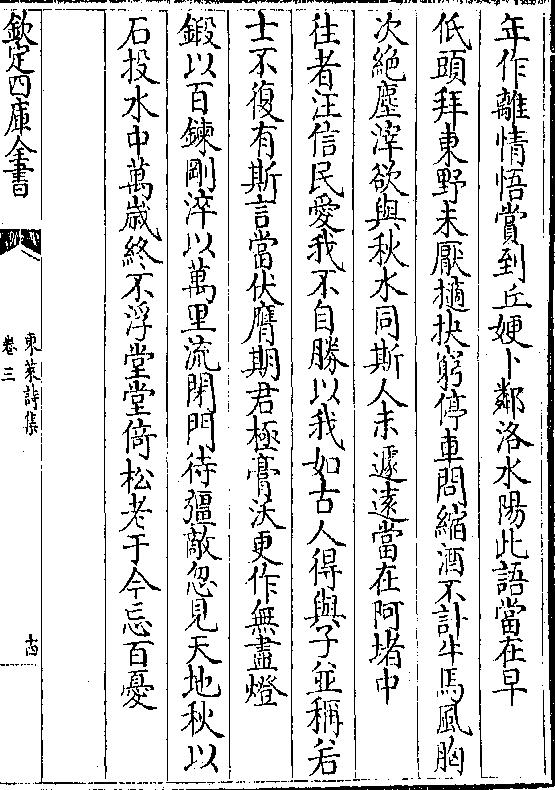 年作離情悟賞到丘㛹卜鄰洛水陽此語當在早
低頭拜東野未厭撾抉窮停車問縮酒不計牛馬風胸
次絶塵滓欲與秋水同斯人未遽逺當在阿堵中
往者汪信民愛我不自勝以我如古人得與子並稱若
士不復有斯言當伏膺期君極膏沃更作無盡燈
鍛以百鍊剛淬以萬里流閉門待彊敵忽見天地秋以
石投水中萬歳終不浮堂堂倚松老于今忘百憂
欽定四庫全書
東萊詩集
卷三
十四